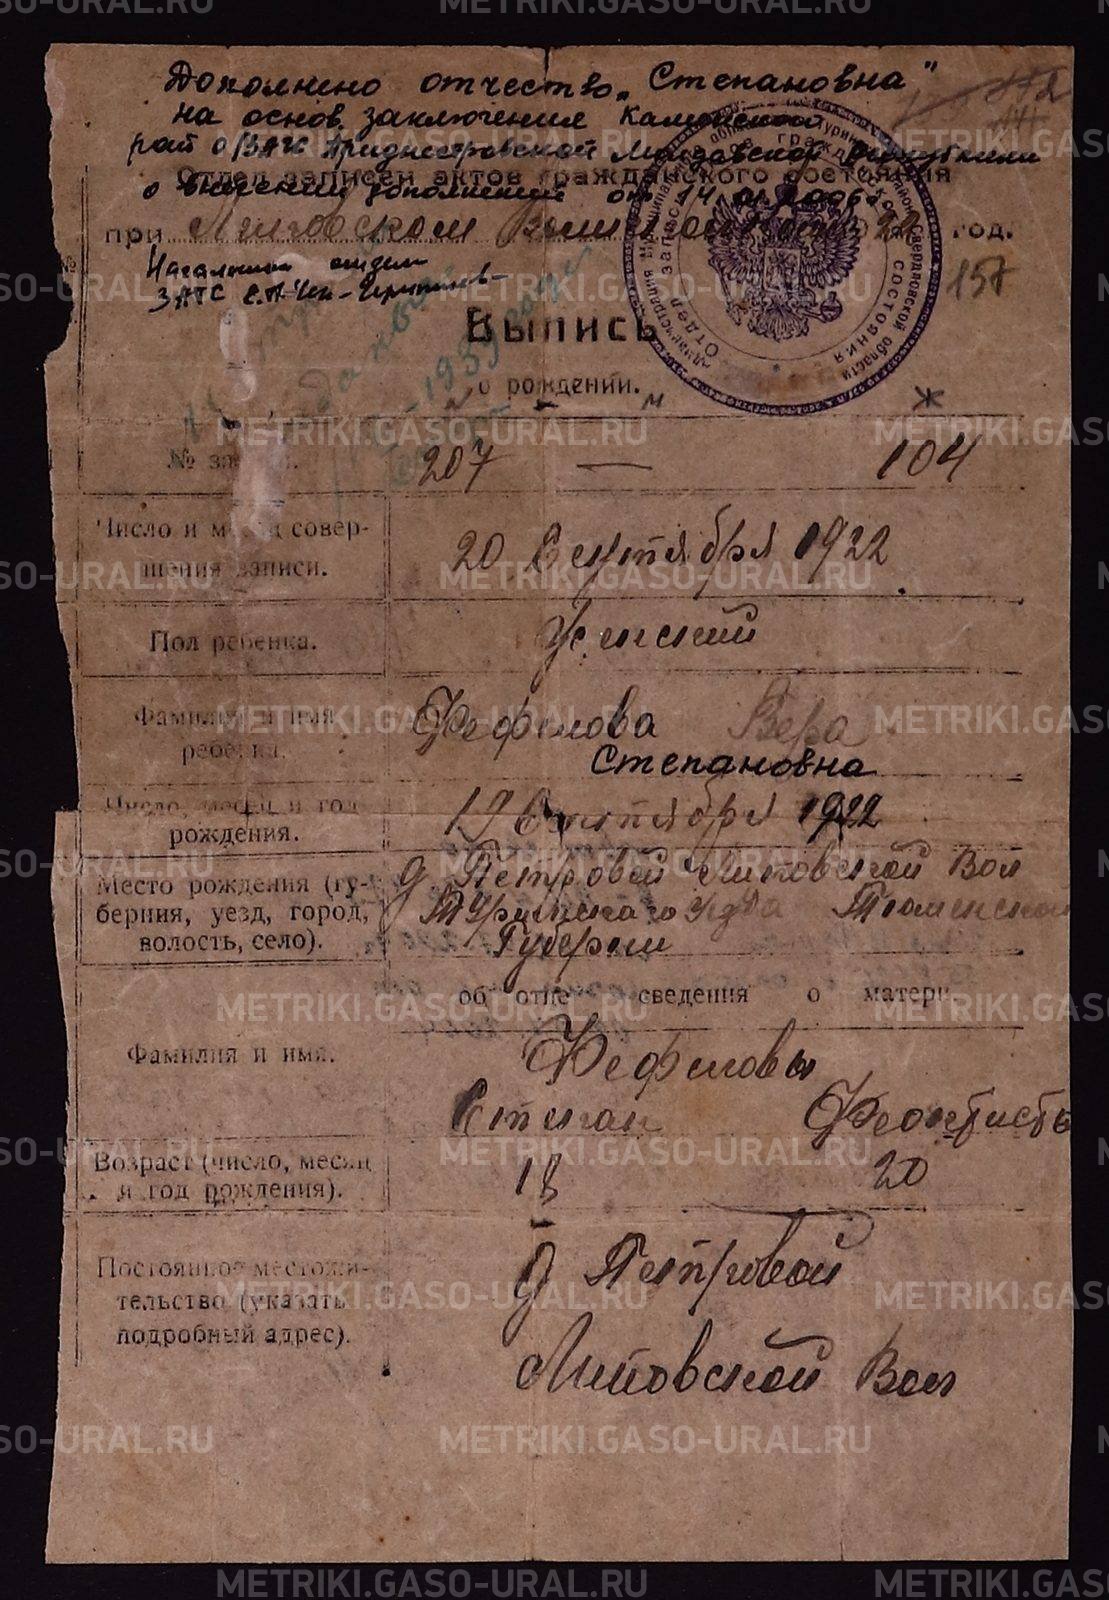 Дополнено отчество „Степановна"
на основ. заключения Каменской
рай о/ЗАГС Приднестровской Молдавской Республики
о внесении дополнений от 14.01.2006г.
Отдел записей актов гражданского состояния
при Липовском Волисполкоме 22 год.
Начальник отдела
ЗАГС
157
Выпись
о рождении.
м ж
№ записи. 207 — 104
Число и месяц совер-
шения записи. 20 Сентября 1922
Пол ребенка. Женский
Фамилия и имя
ребенка. Фефелова Вера
Степановна
Число, месяц и год
рождения. 19 Сентября 1922
Место рождения (гу-
берния, уезд, город,
волость, село).
д. Петровой Липовской Вол
Туринского Уезда Тюменской
Губернии
об отце сведения о матери
Фамилия и имя. Фефеловы
Степан
Возраст (число, месяц
и год рождения). 18 20
Постоянное местожи-
тельство (указать
подробный адрес).
д Петровой
Липовской Вол
METRIKI.GASO-URAL.RU